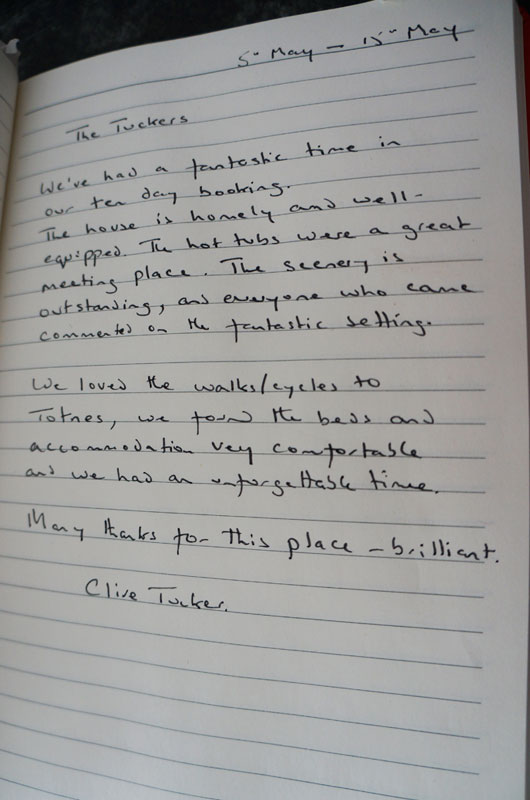 5th May – 15th May
The Tuckers
We've had a fantastic time in
our ten day booking.
The house is homely and well-
equipped. The hot tubs were a great
meeting place. The scenery is
outstanding, and everyone who came
commented on the fantastic setting.
We loved the walks/cycles to
Totnes, we found the beds and
accommodation very comfortable
and we had an unforgettable time.
Many thanks for this place – brilliant.
Clive Tucker.